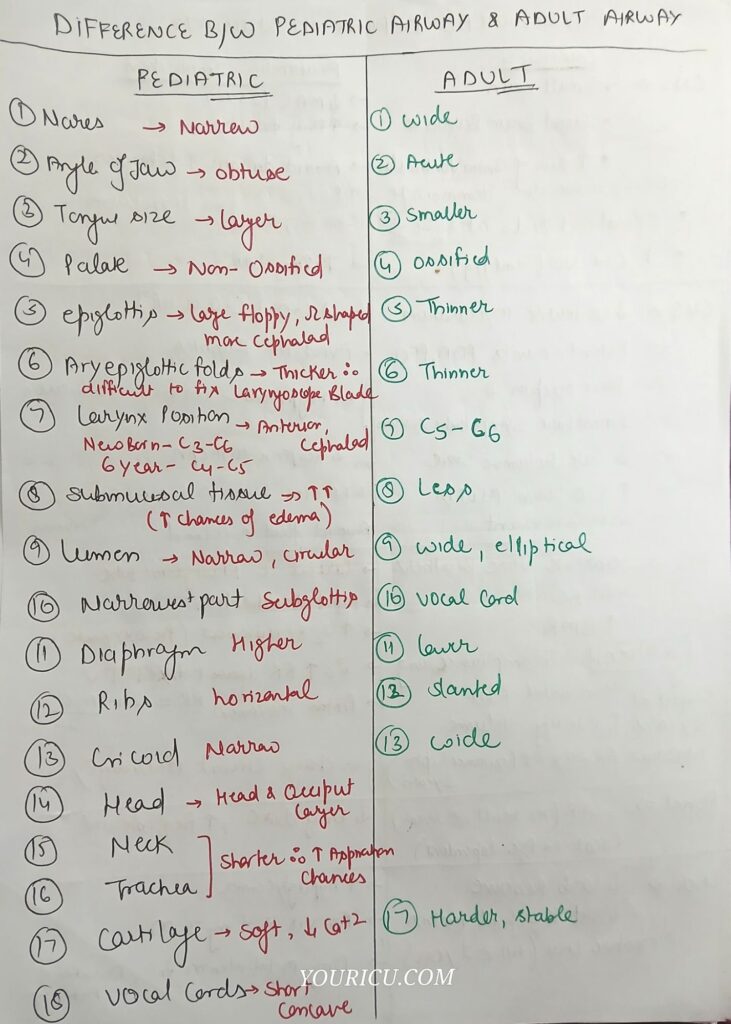 DIFFERENCE B/W PEDIATRIC AIRWAY & ADULT AIRWAY
PEDIATRIC
① Nares → Narrow
② Angle of Jaw → obtuse
③ Tongue size → Larger
④ Palate → Non-Ossified
⑤ epiglottis → large floppy, Ω shaped
more cephalad
⑥ Aryepiglottic folds → Thicker ∴
difficult to fix Laryngoscope Blade
⑦ Larynx Position → Anterior,
Cephalad
New Born - C3-C6
6 year - C4-C5
⑧ Submucosal tissue → ↑↑
(↑ chances of edema)
⑨ Lumen → Narrow, circular
⑩ Narrowest part Subglottis
⑪ Diaphragm Higher
⑫ Ribs horizontal
⑬ Cricoid Narrow
⑭ Head → Head & Occiput
Larger
⑮ Neck
Shorter ∴ ↑ Aspiration
Chances
⑯ Trachea
⑰ Cartilage → Soft, ↓ Ca+2
⑱ Vocal Cords → Short
Concave
ADULT
① Wide
② Acute
③ Smaller
④ Ossified
⑤ Thinner
⑥ Thinner
⑦ C5-C6
⑧ Less
⑨ wide, elliptical
⑩ Vocal Cord
⑪ lower
⑫ slanted
⑬ wide
⑰ Harder, stable
YOURICU.COM